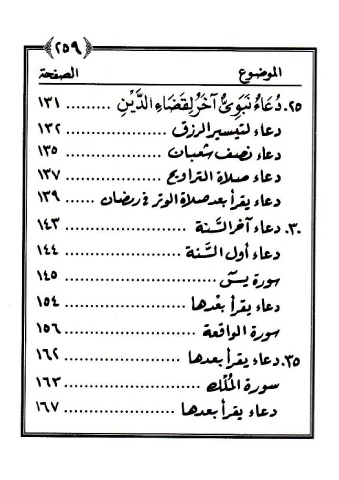 ﴿٢٥٩﴾
الموضوع الصفحة
٢٥. دُعَاءٌ نَبَوِيٌّ آخَرُ لِقَضَاءِ الدَّيْنِ .......... ١٣١
دعاء لتيسير الرزق .................. ١٣٢
دعاء نصف شعبان .................. ١٣٥
دعاء صلاة التراويح .................. ١٣٧
دعاء يقرأ بعد صلاة الوتر في رمضان ...... ١٣٩
٣٠. دعاء آخر السَّنة .................. ١٤٣
دعاء أول السَّنة .................. ١٤٤
سورة يسٓ .................. ١٤٥
دعاء يقرأ بعْدها .................. ١٥٤
سورة الواقعة .................. ١٥٦
٣٥. دعاء يقرأ بعدها .................. ١٦٢
سورة المُلْك .................. ١٦٣
دعاء يقرأ بعدها .................. ١٦٧